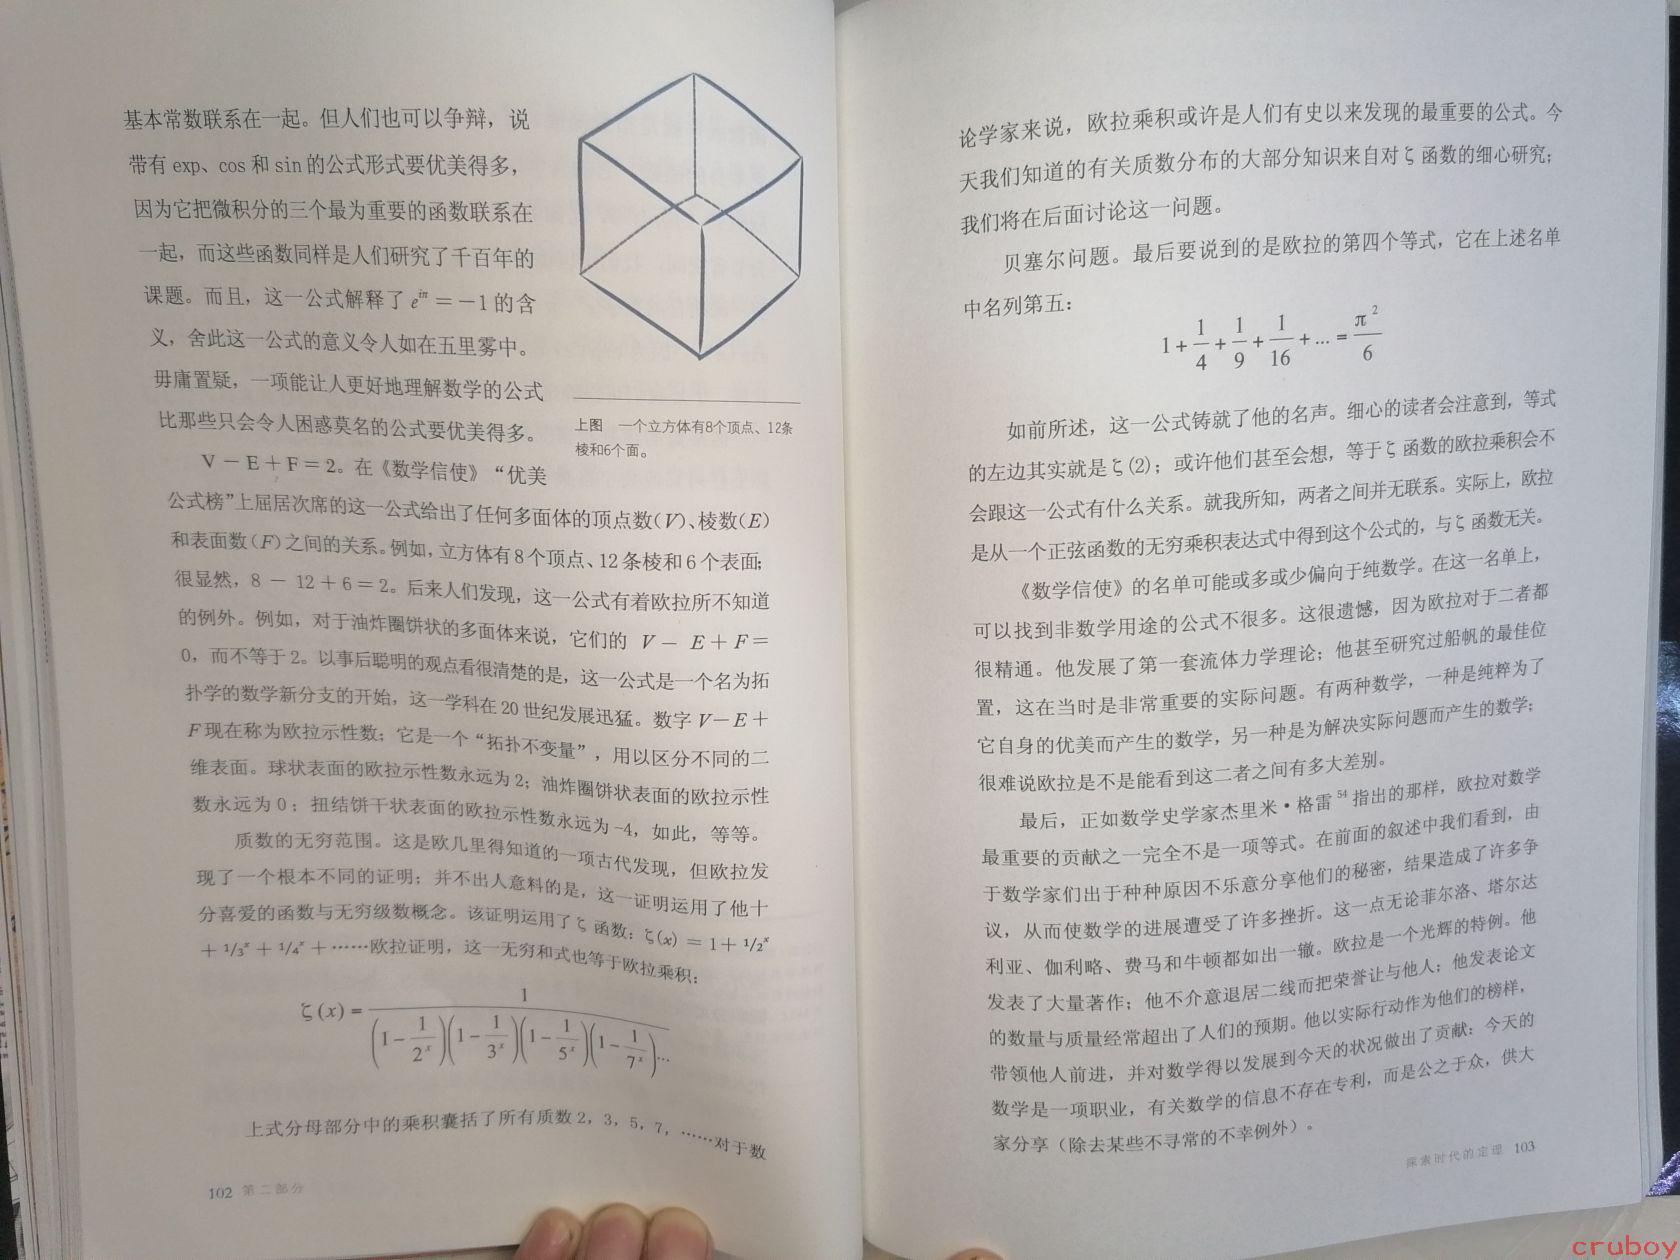 基本常数联系在一起。但人们也可以争辩，说
带有 exp、cos 和 sin 的公式形式要优美得多，
因为它把微积分的三个最为重要的函数联系在
一起，而这些函数同样是人们研究了千百年的
课题。而且，这一公式解释了 e^{iπ} = －1 的含
义，舍此这一公式的意义令人如在五里雾中。
毋庸置疑，一项能让人更好地理解数学的公式
比那些只会令人困惑莫名的公式要优美得多。
上图　一个立方体有8个顶点、12条
棱和6个面。
V － E ＋ F ＝ 2。在《数学信使》“优美
公式榜”上屈居次席的这一公式给出了任何多面体的顶点数（V）、棱数（E）
和表面数（F）之间的关系。例如，立方体有 8 个顶点、12 条棱和 6 个表面；
很显然，8 － 12 ＋ 6 ＝ 2。后来人们发现，这一公式有着欧拉所不知道
的例外。例如，对于油炸圈饼状的多面体来说，它们的 V － E ＋ F ＝
0，而不等于 2。以事后聪明的观点看很清楚的是，这一公式是一个名为拓
扑学的数学新分支的开始，这一学科在 20 世纪发展迅猛。数字 V－E ＋
F 现在称为欧拉示性数；它是一个“拓扑不变量”，用以区分不同的二
维表面。球状表面的欧拉示性数永远为 2；油炸圈饼状表面的欧拉示性
数永远为 0；扭结饼干状表面的欧拉示性数永远为 -4，如此，等等。
质数的无穷范围。这是欧几里得知道的一项古代发现，但欧拉发
现了一个根本不同的证明；并不出人意料的是，这一证明运用了他十
分喜爱的函数与无穷级数概念。该证明运用了 ζ 函数：ζ(x) ＝ 1＋ 1/2^x
＋ 1/3^x ＋ 1/4^x ＋ ……欧拉证明，这一无穷和式也等于欧拉乘积：
ζ(x) = 1/((1－1/2^x)(1－1/3^x)(1－1/5^x)(1－1/7^x)…)
上式分母部分中的乘积囊括了所有质数 2，3，5，7，……对于数
102 第二部分
论学家来说，欧拉乘积或许是人们有史以来发现的最重要的公式。今
天我们知道的有关质数分布的大部分知识来自对 ζ 函数的细心研究；
我们将在后面讨论这一问题。
贝塞尔问题。最后要说到的是欧拉的第四个等式，它在上述名单
中名列第五：
1 + 1/4 + 1/9 + 1/16 + ... = π^2/6
如前所述，这一公式铸就了他的名声。细心的读者会注意到，等式
的左边其实就是 ζ(2)；或许他们甚至会想，等于 ζ 函数的欧拉乘积会不
会跟这一公式有什么关系。就我所知，两者之间并无联系。实际上，欧拉
是从一个正弦函数的无穷乘积表达式中得到这个公式的，与 ζ 函数无关。
《数学信使》的名单可能或多或少偏向于纯数学。在这一名单上，
可以找到非数学用途的公式不很多。这很遗憾，因为欧拉对于二者都
很精通。他发展了第一套流体力学理论；他甚至研究过船帆的最佳位
置，这在当时是非常重要的实际问题。有两种数学，一种是纯粹为了
它自身的优美而产生的数学，另一种是为解决实际问题而产生的数学；
很难说欧拉是不是能看到这二者之间有多大差别。
最后，正如数学史学家杰里米·格雷 54 指出的那样，欧拉对数学
最重要的贡献之一完全不是一项等式。在前面的叙述中我们看到，由
于数学家们出于种种原因不乐意分享他们的秘密，结果造成了许多争
议，从而使数学的进展遭受了许多挫折。这一点无论菲尔洛、塔尔达
利亚、伽利略、费马和牛顿都如出一辙。欧拉是一个光辉的特例。他
发表了大量著作；他不介意退居二线而把荣誉让与他人；他发表论文
的数量与质量经常超出了人们的预期。他以实际行动作为他们的榜样，
带领他人前进，并对数学得以发展到今天的状况做出了贡献：今天的
数学是一项职业，有关数学的信息不存在专利，而是公之于众，供大
家分享（除去某些不寻常的不幸例外）。
探索时代的定理 103
cruboy